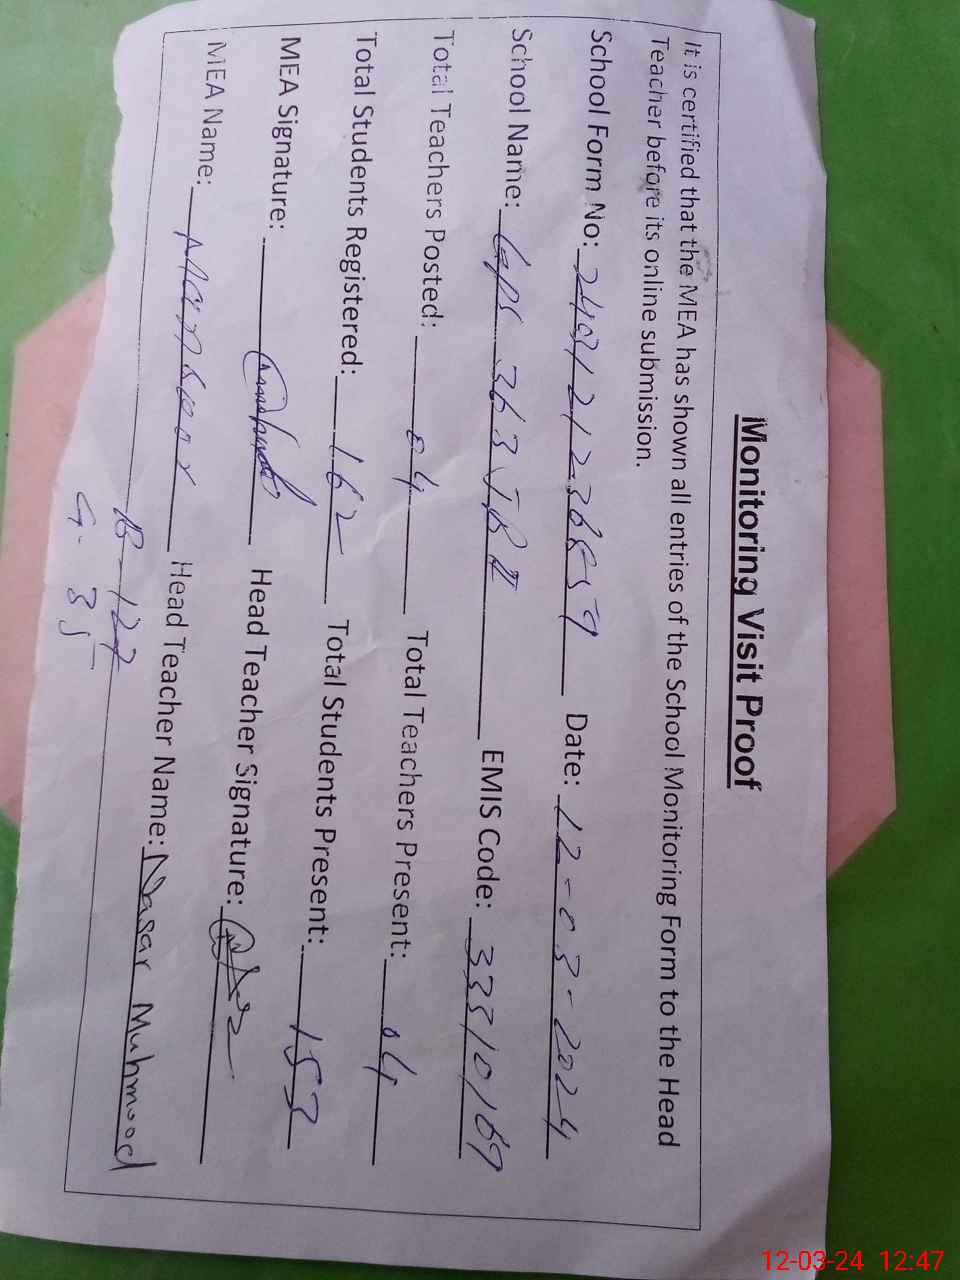 Monitoring Visit Proof
It is certified that the MEA has shown all entries of the School Monitoring Form to the Head
Teacher before its online submission.
School Form No: Date: 12-03-2024
School Name: GPS 363 JB EMIS Code: 33310169
Total Teachers Posted: 04 Total Teachers Present: 04
Total Students Registered: 162 Total Students Present: 153
MEA Signature: Head Teacher Signature:
MEA Name: Head Teacher Name: Nasar Muhmood
B- 127
G- 35
12-03-24 12:47